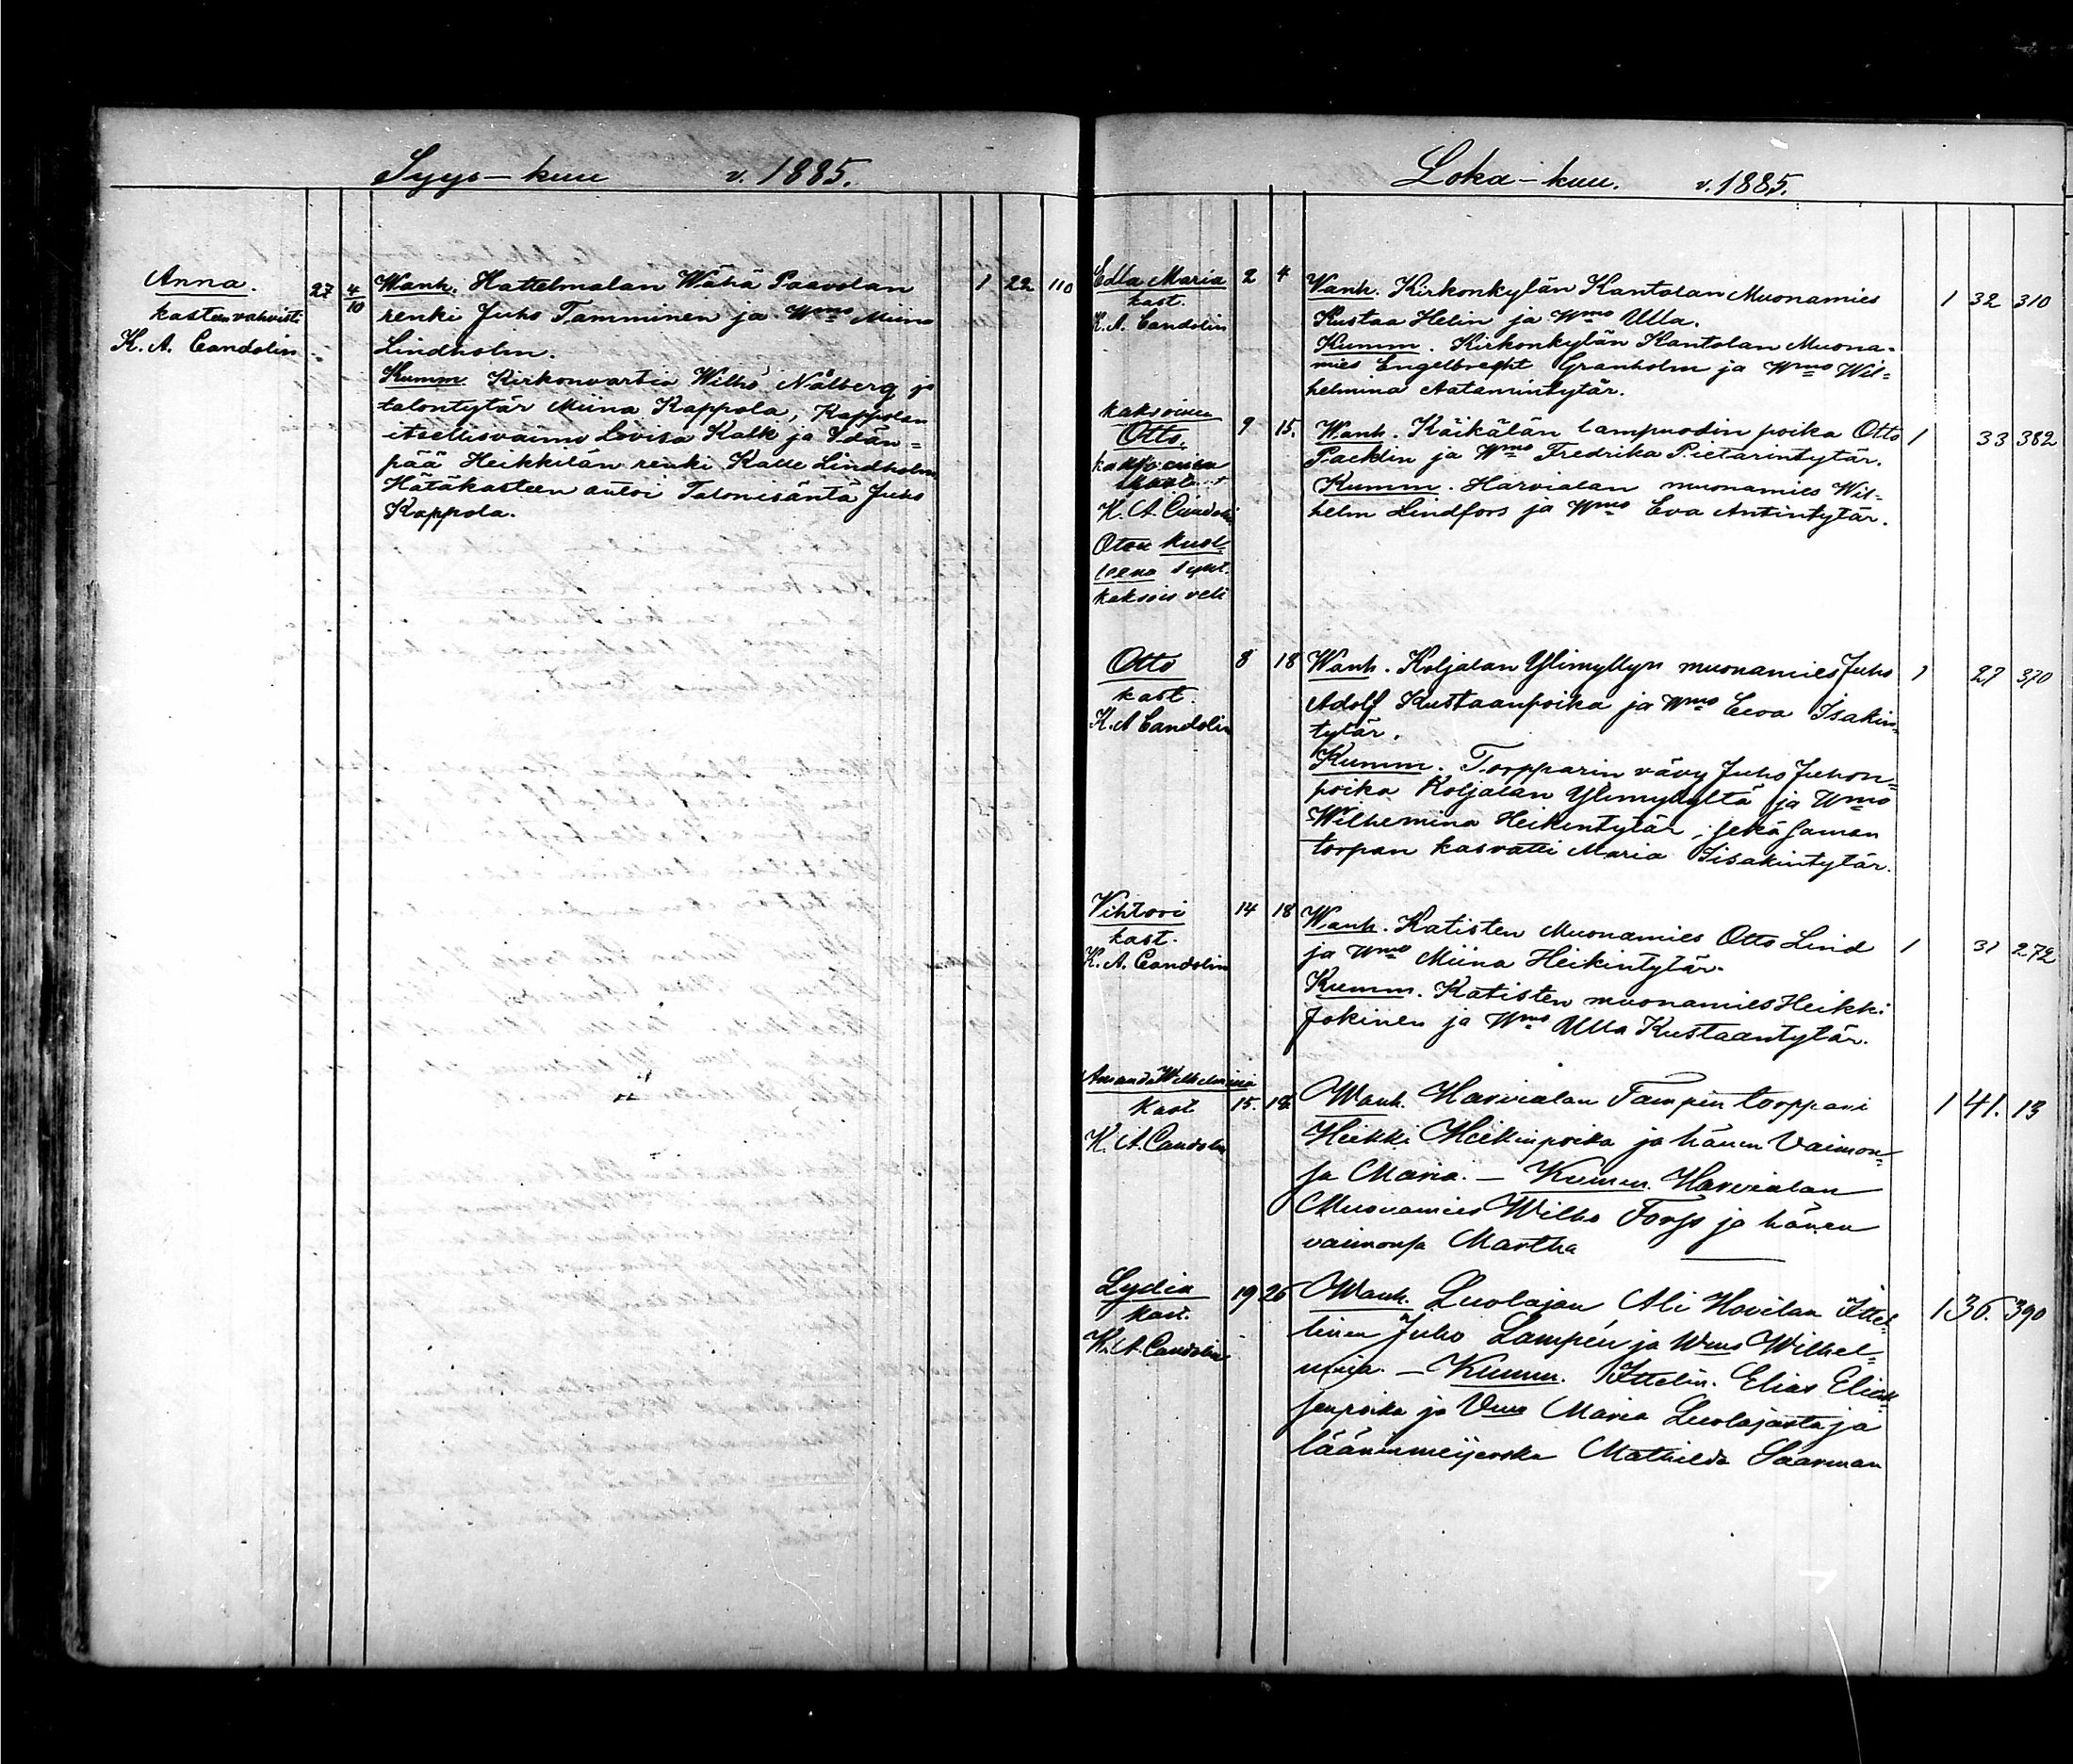 Syys-kuu v. 1885.
Anna. 27 4/10 Wanh. Hattelmalan Wähä Paavolan 1 22 110
kasteen vahvisti renki Juho Tamminen ja Wmo Miina
K. A. Candolin Lindholm.
Kumm. Kirkonvartia Wilho Nålberg ja
talontytär Miina Kappola, Kappolan
itsellisvaimo Lovisa Kalk ja Idän=
pää Heikkilän renki Kalle Lindholm
Hätäkasteen antoi Talonisäntä Juho
Kappola.
Loka-kuu. v. 1885.
Edla Maria 2 4 Wanh. Kirkonkylän Kantolan Muonamies 1 32 310
kast. Kustaa Helin ja Wmo Ulla.
K. A. Candolin Kumm. Kirkonkylän Kantolan Muona-
mies Engelbrecht Granholm ja Wmo Wil=
helmina Aatamintytär.
kaksoinen
Otto. 9 15. Wanh. Käikälän lampuodin poika Otto 1 33 382
Packlin ja Wmo Fredrika Pietarintytär.
Kumm. Harvialan muonamies Wil=
K. A. Candolin helm Lindfors ja Wmo Eva Antintytär.
Oton kuol=
leena synt.
kaksois veli
Otto 8 18 Wanh. Koljalan Ylimyllyn muonamies Juho 1 27 370
kast. Adolf Kustaanpoika ja Wmo Eeva Isakin=
K. A Candolin tytär.
Kumm. Torpparin vävy Juho Juhon=
poika Koljalan Ylimyllyltä ja Wmo
Wilhemina Heikintytär, sekä saman
torpan kasvatti Maria Iisakintytär.
Vihtori 14 18 Wanh. Katisten Muonamies Otto Lind 1 31 272
kast. ja Wmo Miina Heikintytär.
K. A. Candolin Kumm. Katisten muonamies Heikki
Jokinen ja Wmo Ulla Kustaantytär.
Amanda Wilhelmina
kast 15. 18 Wanh. Harvialan Tampin torppari 1 41. 13
K. A. Candolin Heikki Heikinpoika ja hänen Vaimon=
sa Maria. — Kumm. Harvialan
Muonamies Wilho Forss ja hänen
vaimonsa Martha
Lydia 19 26 Wanh. Luolajan Ali Hovilan Ittel= 1 36. 390
kast. linen Juho Lampén ja Wmo Wilhel=
K. A. Candolin mina. — Kumm. Ittelin. Elias Eliak=
senpoika ja Vmo Maria Luolajasta ja
lääninmeijerska Mathilda Saarman